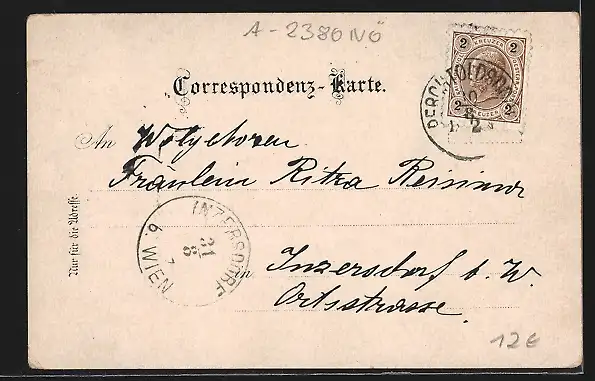 A-2380 NÖ
Correspondenz-Karte.
2 KREUZER 2
2 KREUZER 2
PERCHTOLDSDORF
An Wolgeboren
Fräulein Ritza
Nur für die Adresse.
INZERSDORF
31
8
7
6. WIEN
in Inzersdorf b. W.
Ortsstrasse.
12€